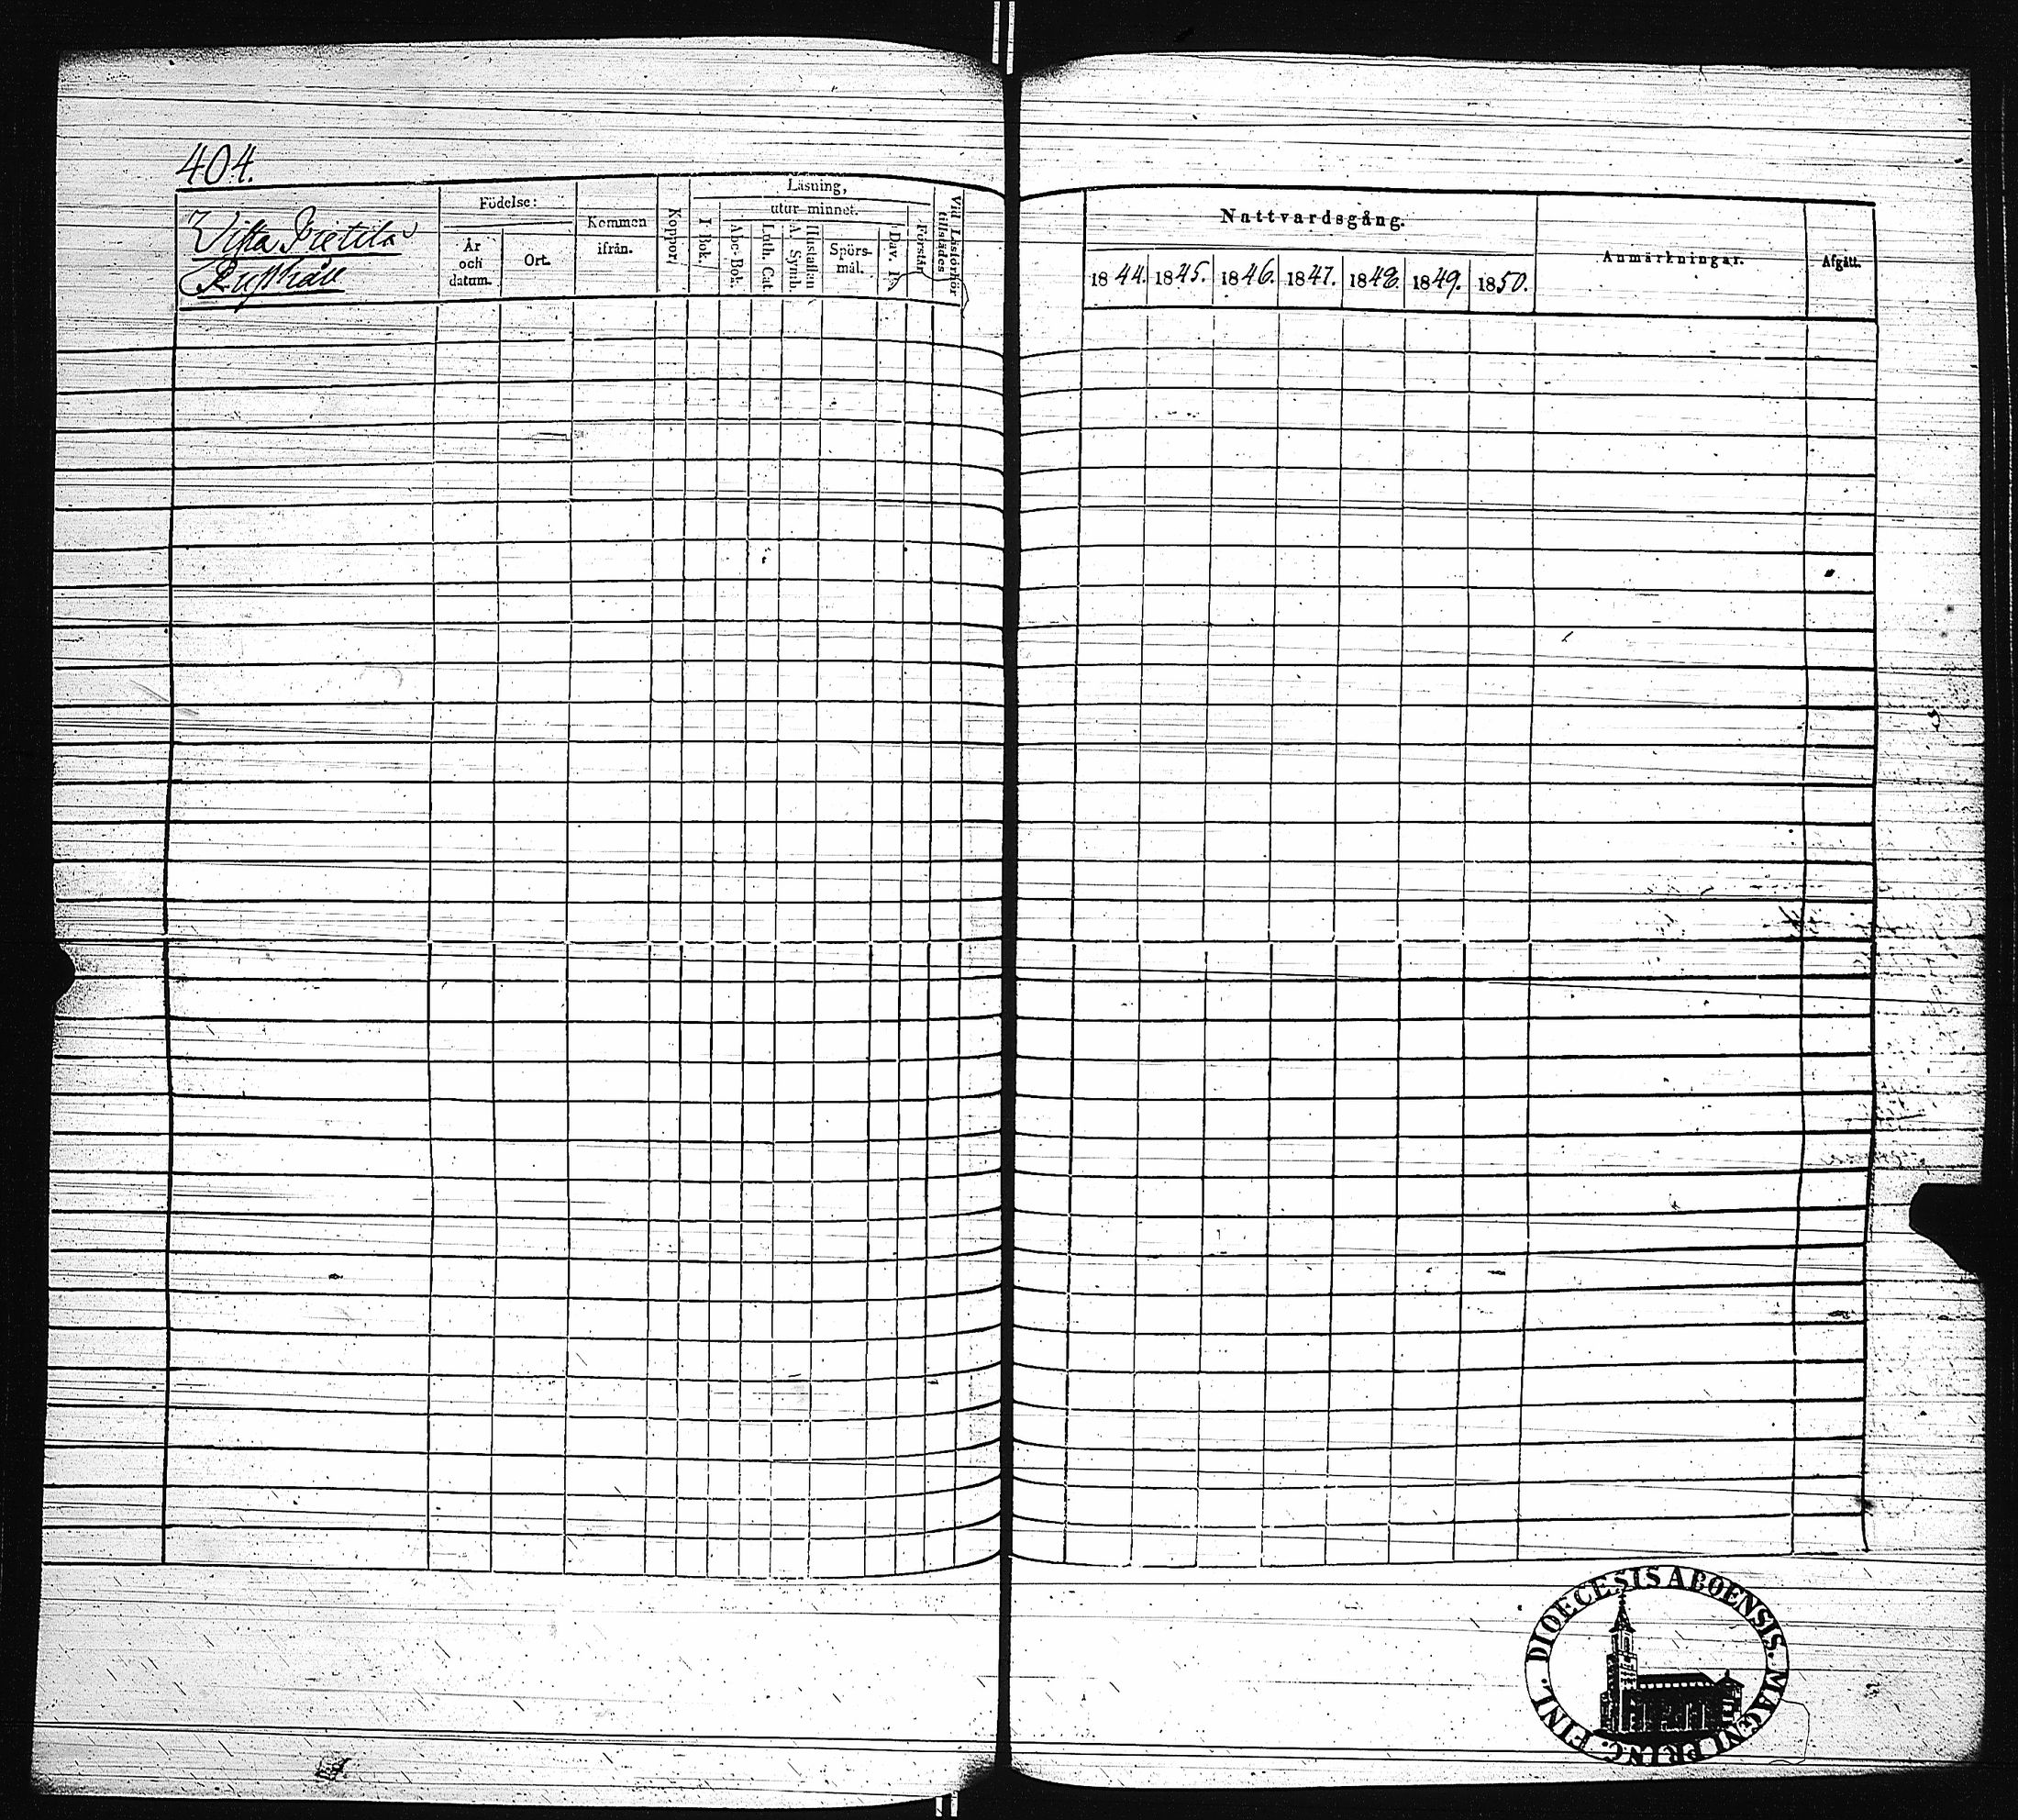 404.
Wista Pietilä
Rusthåll
Födelse:
År och datum.
Ort.
Kommen ifrån.
Koppor.
Läsning,
I Bok.
utur minnet.
Abc-Bok.
Luth. Cat.
A. Symb.
Hustaflan
Spörs-mål.
Dav. Ps.
Förstår
Vid Läsförhör tillstädes
Nattvardsgång.
1844.
1845.
1846.
1847.
1848.
1849.
1850.
Anmärkningar.
Afgått.
DIOECESIS ABOENSIS. MAGNI PRINC. FINL.